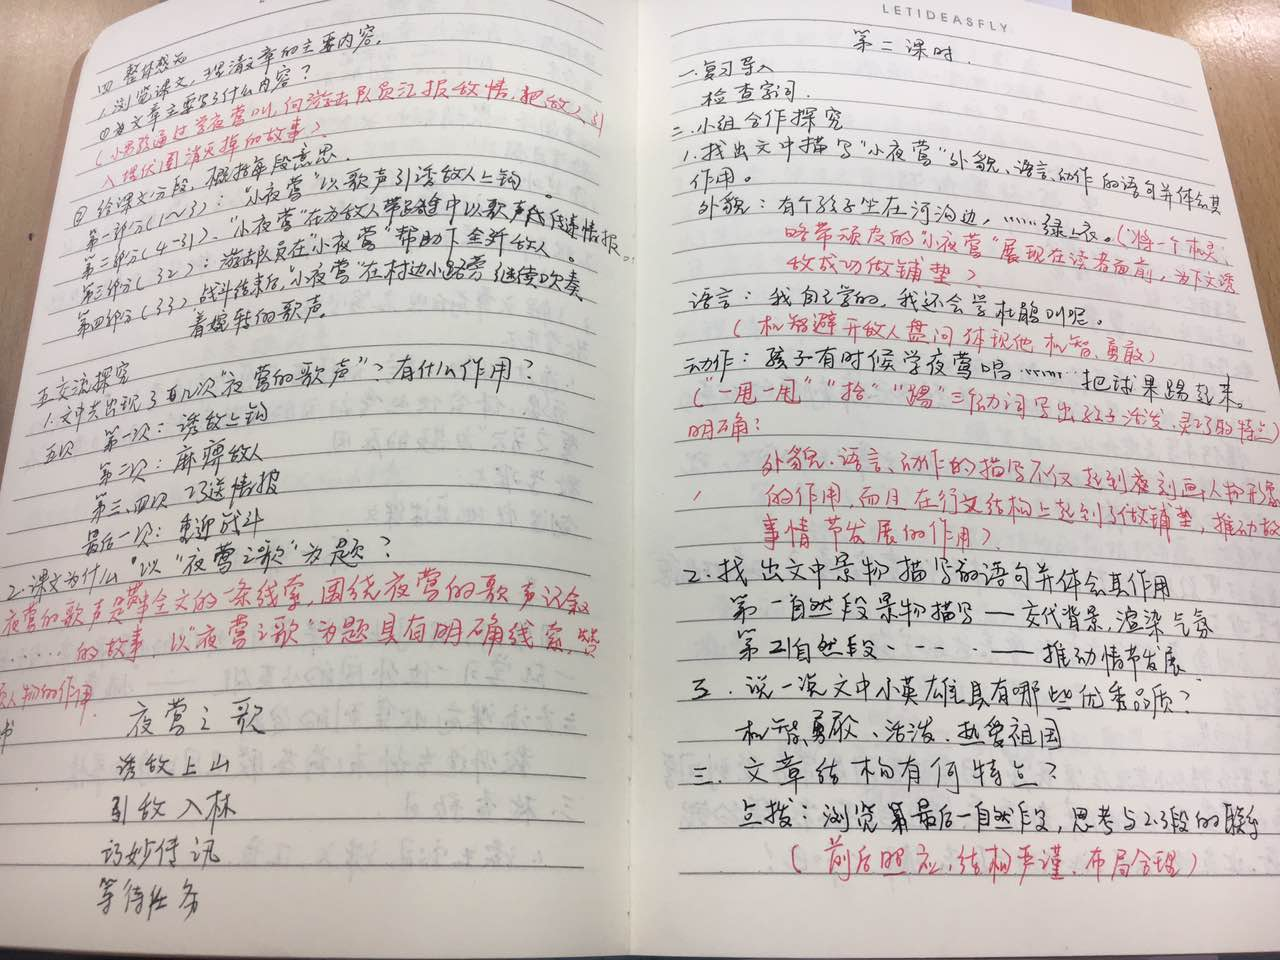 四 整体感知
1.浏览课文,理清文章的主要内容。
①文章主要写了什么内容?
(小男孩通过学夜莺叫,向游击队员汇报敌情,把敌人引
入埋伏圈消灭掉的故事)
② 给课文分段,概括每段意思.
第一部分(1~3):“小夜莺”以歌声引诱敌人上钩。
第二部分(4-31)、“小夜莺”在为敌人带路途中以歌声传递情报。
第三部分(32):游击队员在“小夜莺”帮助下全歼敌人。
第四部分(33)战斗结束后,“小夜莺”在村边小路旁继续吹奏
着婉转的歌声。
五交流探究
1.文中共出现了有几次“夜莺的歌声”?有什么作用?
五次 第一次:诱敌上钩
第二次:麻痹敌人
第三、四次 巧送情报
最后一次:重迎战斗
2.课文为什么“以“夜莺之歌”为题?
夜莺的歌声是贯串全文的一条线索,围绕夜莺的歌声记叙
......的故事,以“夜莺之歌”为题具有明确线索,赞
人物的作用.
夜莺之歌
诱敌上山
引敌入林
巧妙传讯
等待任务
LETIDEASFLY
第二课时.
一.复习导入
检查字词.
二.小组合作探究
1.找出文中描写“小夜莺”外貌、语言、动作的语句并体会其
作用。
外貌:有个孩子坐在河沟边,......绿上衣。(将一个机灵、
略带顽皮的“小夜莺”展现在读者面前,为下文诱
敌成功做铺垫)
语言:我自己学的,我还会学杜鹃叫呢。
(机智避开敌人盘问体现他机智、勇敢)
动作:孩子有时候学夜莺唱......把球果踢起来。
(“一甩一甩”“拾”“踢”三个动词写出孩子活泼、灵巧的特点)
明确:
外貌、语言、动作的描写不仅起到在刻画人物形象
的作用,而且在行文结构上起到了做铺垫,推动故
事情节发展的作用).
2.找出文中景物描写的语句并体会其作用
第一自然段景物描写—交代背景,渲染气氛
第21自然段....—推动情节发展
三.说一说文中小英雄具有哪些优秀品质?
机智、勇敢、活泼、热爱祖国
三.文章结构有何特点?
点拨:浏览第最后一自然段,思考与2.3段的联系
(前后照应,结构严谨、布局合理)